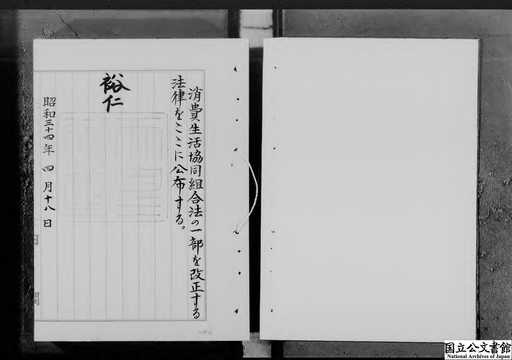 消費生活協同組合法の一部を改正する
法律をここに公布する。
裕仁
昭和三十四年四月十八日
国立公文書館
National Archives of Japan